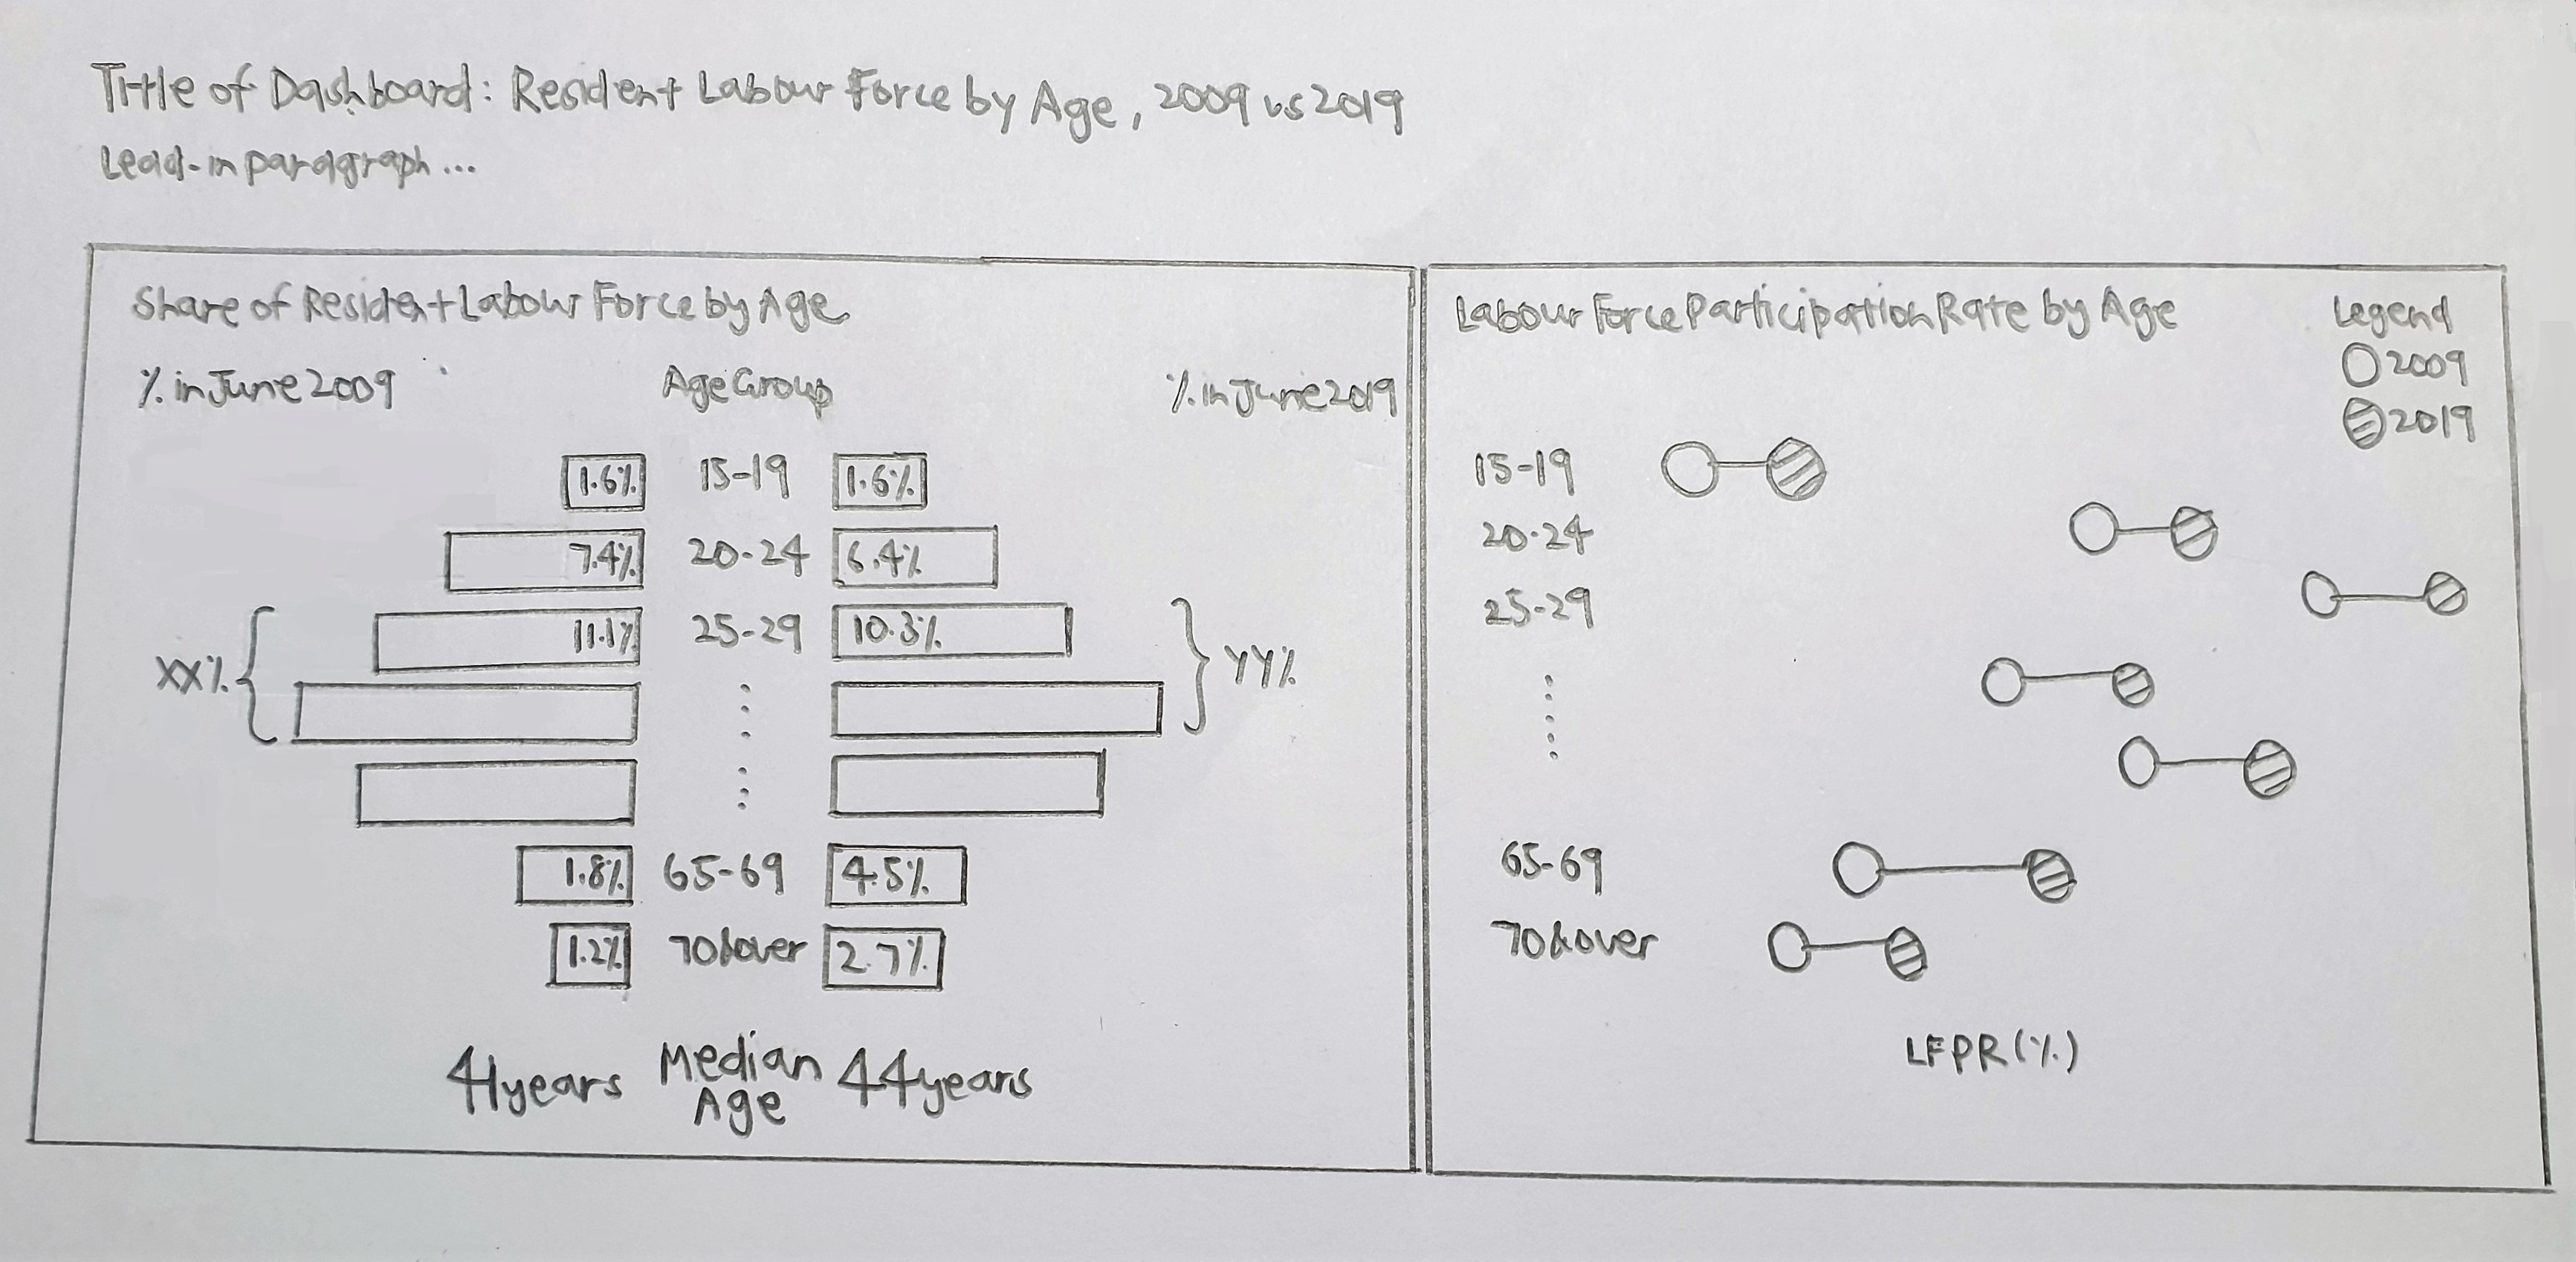 Title of Dashboard: Resident Labour Force by Age, 2009 vs 2019
Lead-in paragraph...
Share of Resident Labour Force by Age
% in June 2009 Age Group % in June 2019
1.6% 15-19 1.6%
7.4% 20-24 6.4%
11.1% 25-29 10.3%
XX% YY%
1.8% 65-69 4.5%
1.2% 70&over 2.7%
41years Median Age 44years
Labour Force Participation Rate by Age
Legend
2009
2019
15-19
20-24
25-29
65-69
70&over
LFPR(%)